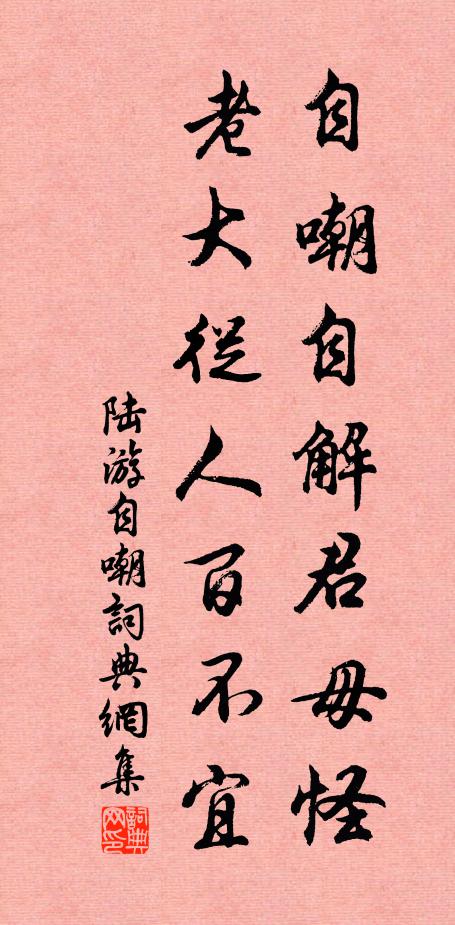 自嘲自解君毋怪
老大從人百不宜
陆游自嘲詞典網集
詞典网印